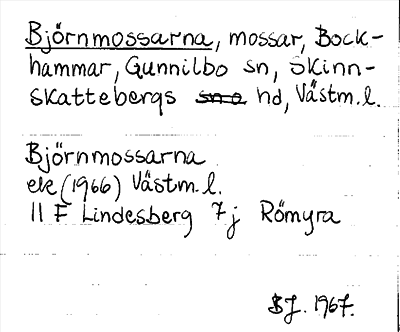 Björnmossarna, mossar, Bock-
hammar, Gunnilbo sn, Skinn-
skattebergs sna hd, Västm.l.
Björnmossarna
ek (1966) Västm.l.
11 F Lindesberg 7j Römyra
BJ. 1967.